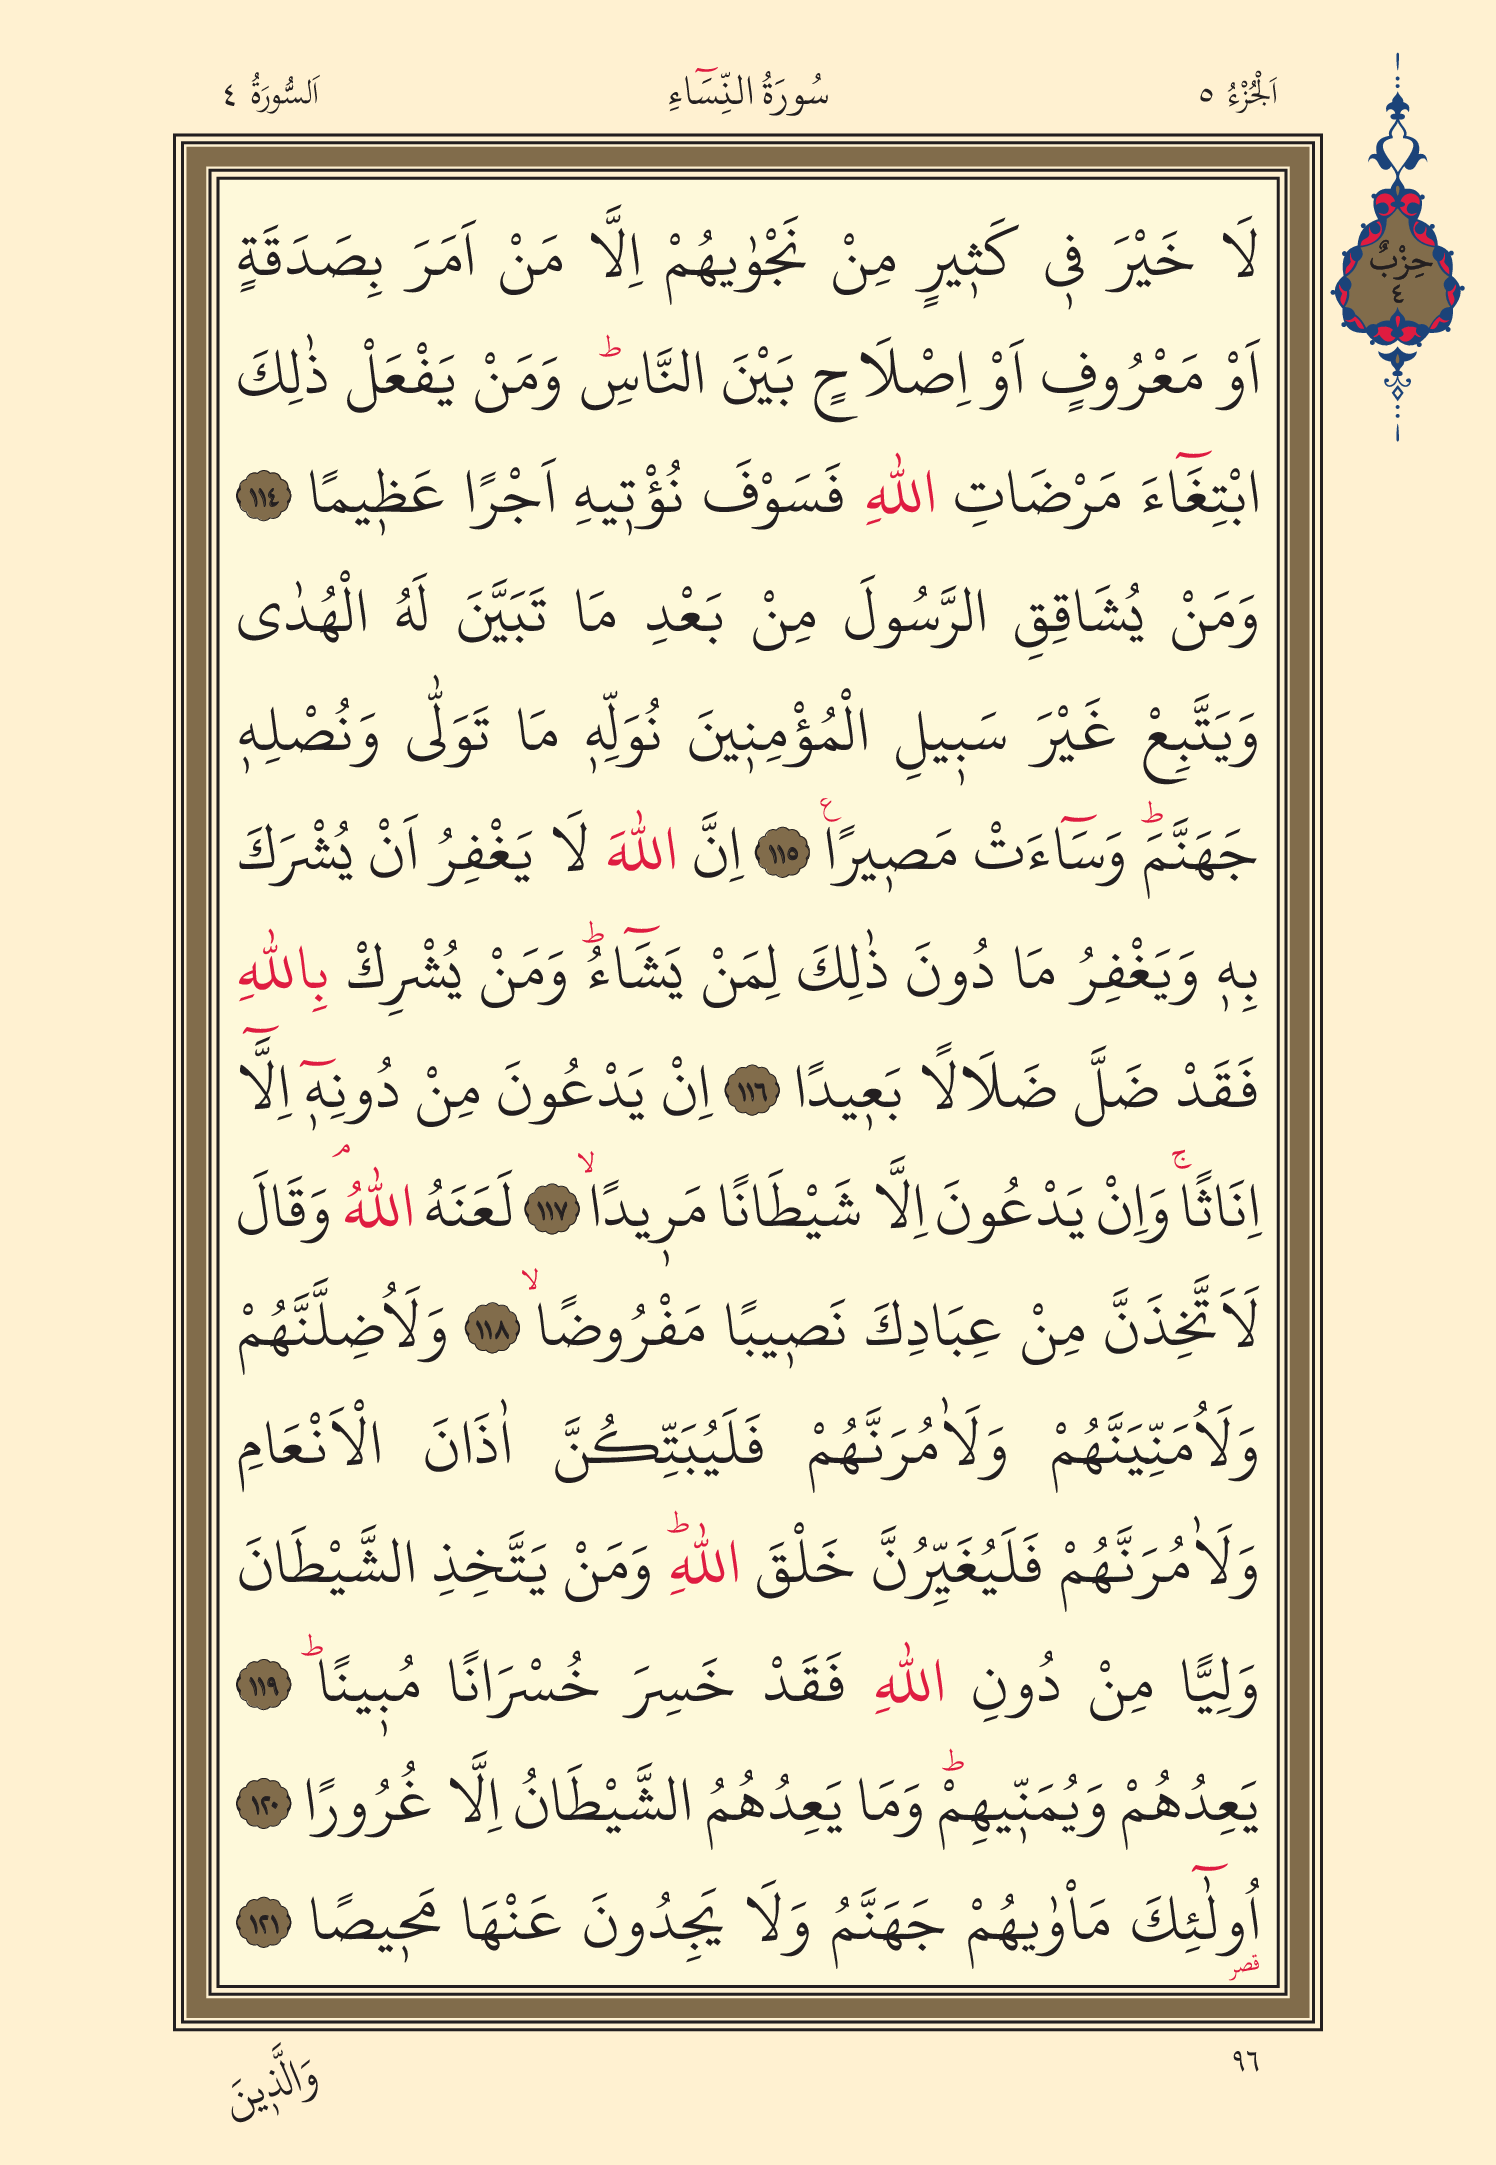 اَلْجُزْءُ ٥
سُورَةُ النِّسَٓاءِ
اَلسُّورَةُ ٤
حِزْبٌ
٤
لَا خَيْرَ ف۪ي كَث۪يرٍ مِنْ نَجْوٰيهُمْ اِلَّا مَنْ اَمَرَ بِصَدَقَةٍ
اَوْ مَعْرُوفٍ اَوْ اِصْلَاحٍ بَيْنَ النَّاسِۜ وَمَنْ يَفْعَلْ ذٰلِكَ
ابْتِغَٓاءَ مَرْضَاتِ اللّٰهِ فَسَوْفَ نُؤْت۪يهِ اَجْرًا عَظ۪يمًا ١١٤
وَمَنْ يُشَاقِقِ الرَّسُولَ مِنْ بَعْدِ مَا تَبَيَّنَ لَهُ الْهُدٰى
وَيَتَّبِعْ غَيْرَ سَب۪يلِ الْمُؤْمِن۪ينَ نُوَلِّه۪ مَا تَوَلّٰى وَنُصْلِه۪
جَهَنَّمَۜ وَسَٓاءَتْ مَص۪يرًاࣖ ١١٥ اِنَّ اللّٰهَ لَا يَغْفِرُ اَنْ يُشْرَكَ
بِه۪ وَيَغْفِرُ مَا دُونَ ذٰلِكَ لِمَنْ يَشَٓاءُۜ وَمَنْ يُشْرِكْ بِاللّٰهِ
فَقَدْ ضَلَّ ضَلَالًا بَع۪يدًا ١١٦ اِنْ يَدْعُونَ مِنْ دُونِه۪ٓ اِلَّٓا
اِنَاثًاۚ وَاِنْ يَدْعُونَ اِلَّا شَيْطَانًا مَر۪يدًاۙ ١١٧ لَعَنَهُ اللّٰهُۢ وَقَالَ
لَاَتَّخِذَنَّ مِنْ عِبَادِكَ نَص۪يبًا مَفْرُوضًاۙ ١١٨ وَلَاُضِلَّنَّهُمْ
وَلَاُمَنِّيَنَّهُمْ وَلَاٰمُرَنَّهُمْ فَلَيُبَتِّكُنَّ اٰذَانَ الْاَنْعَامِ
وَلَاٰمُرَنَّهُمْ فَلَيُغَيِّرُنَّ خَلْقَ اللّٰهِۜ وَمَنْ يَتَّخِذِ الشَّيْطَانَ
وَلِيًّا مِنْ دُونِ اللّٰهِ فَقَدْ خَسِرَ خُسْرَانًا مُب۪ينًاۜ ١١٩
يَعِدُهُمْ وَيُمَنّ۪يهِمْۜ وَمَا يَعِدُهُمُ الشَّيْطَانُ اِلَّا غُرُورًا ١٢٠
اُولٰٓئِكَ مَأْوٰيهُمْ جَهَنَّمُ وَلَا يَجِدُونَ عَنْهَا مَح۪يصًا ١٢١
قصر
٩٦
وَالَّذ۪ينَ